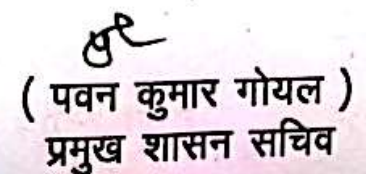 ( पवन कुमार गोयल )
प्रमुख शासन सचिव